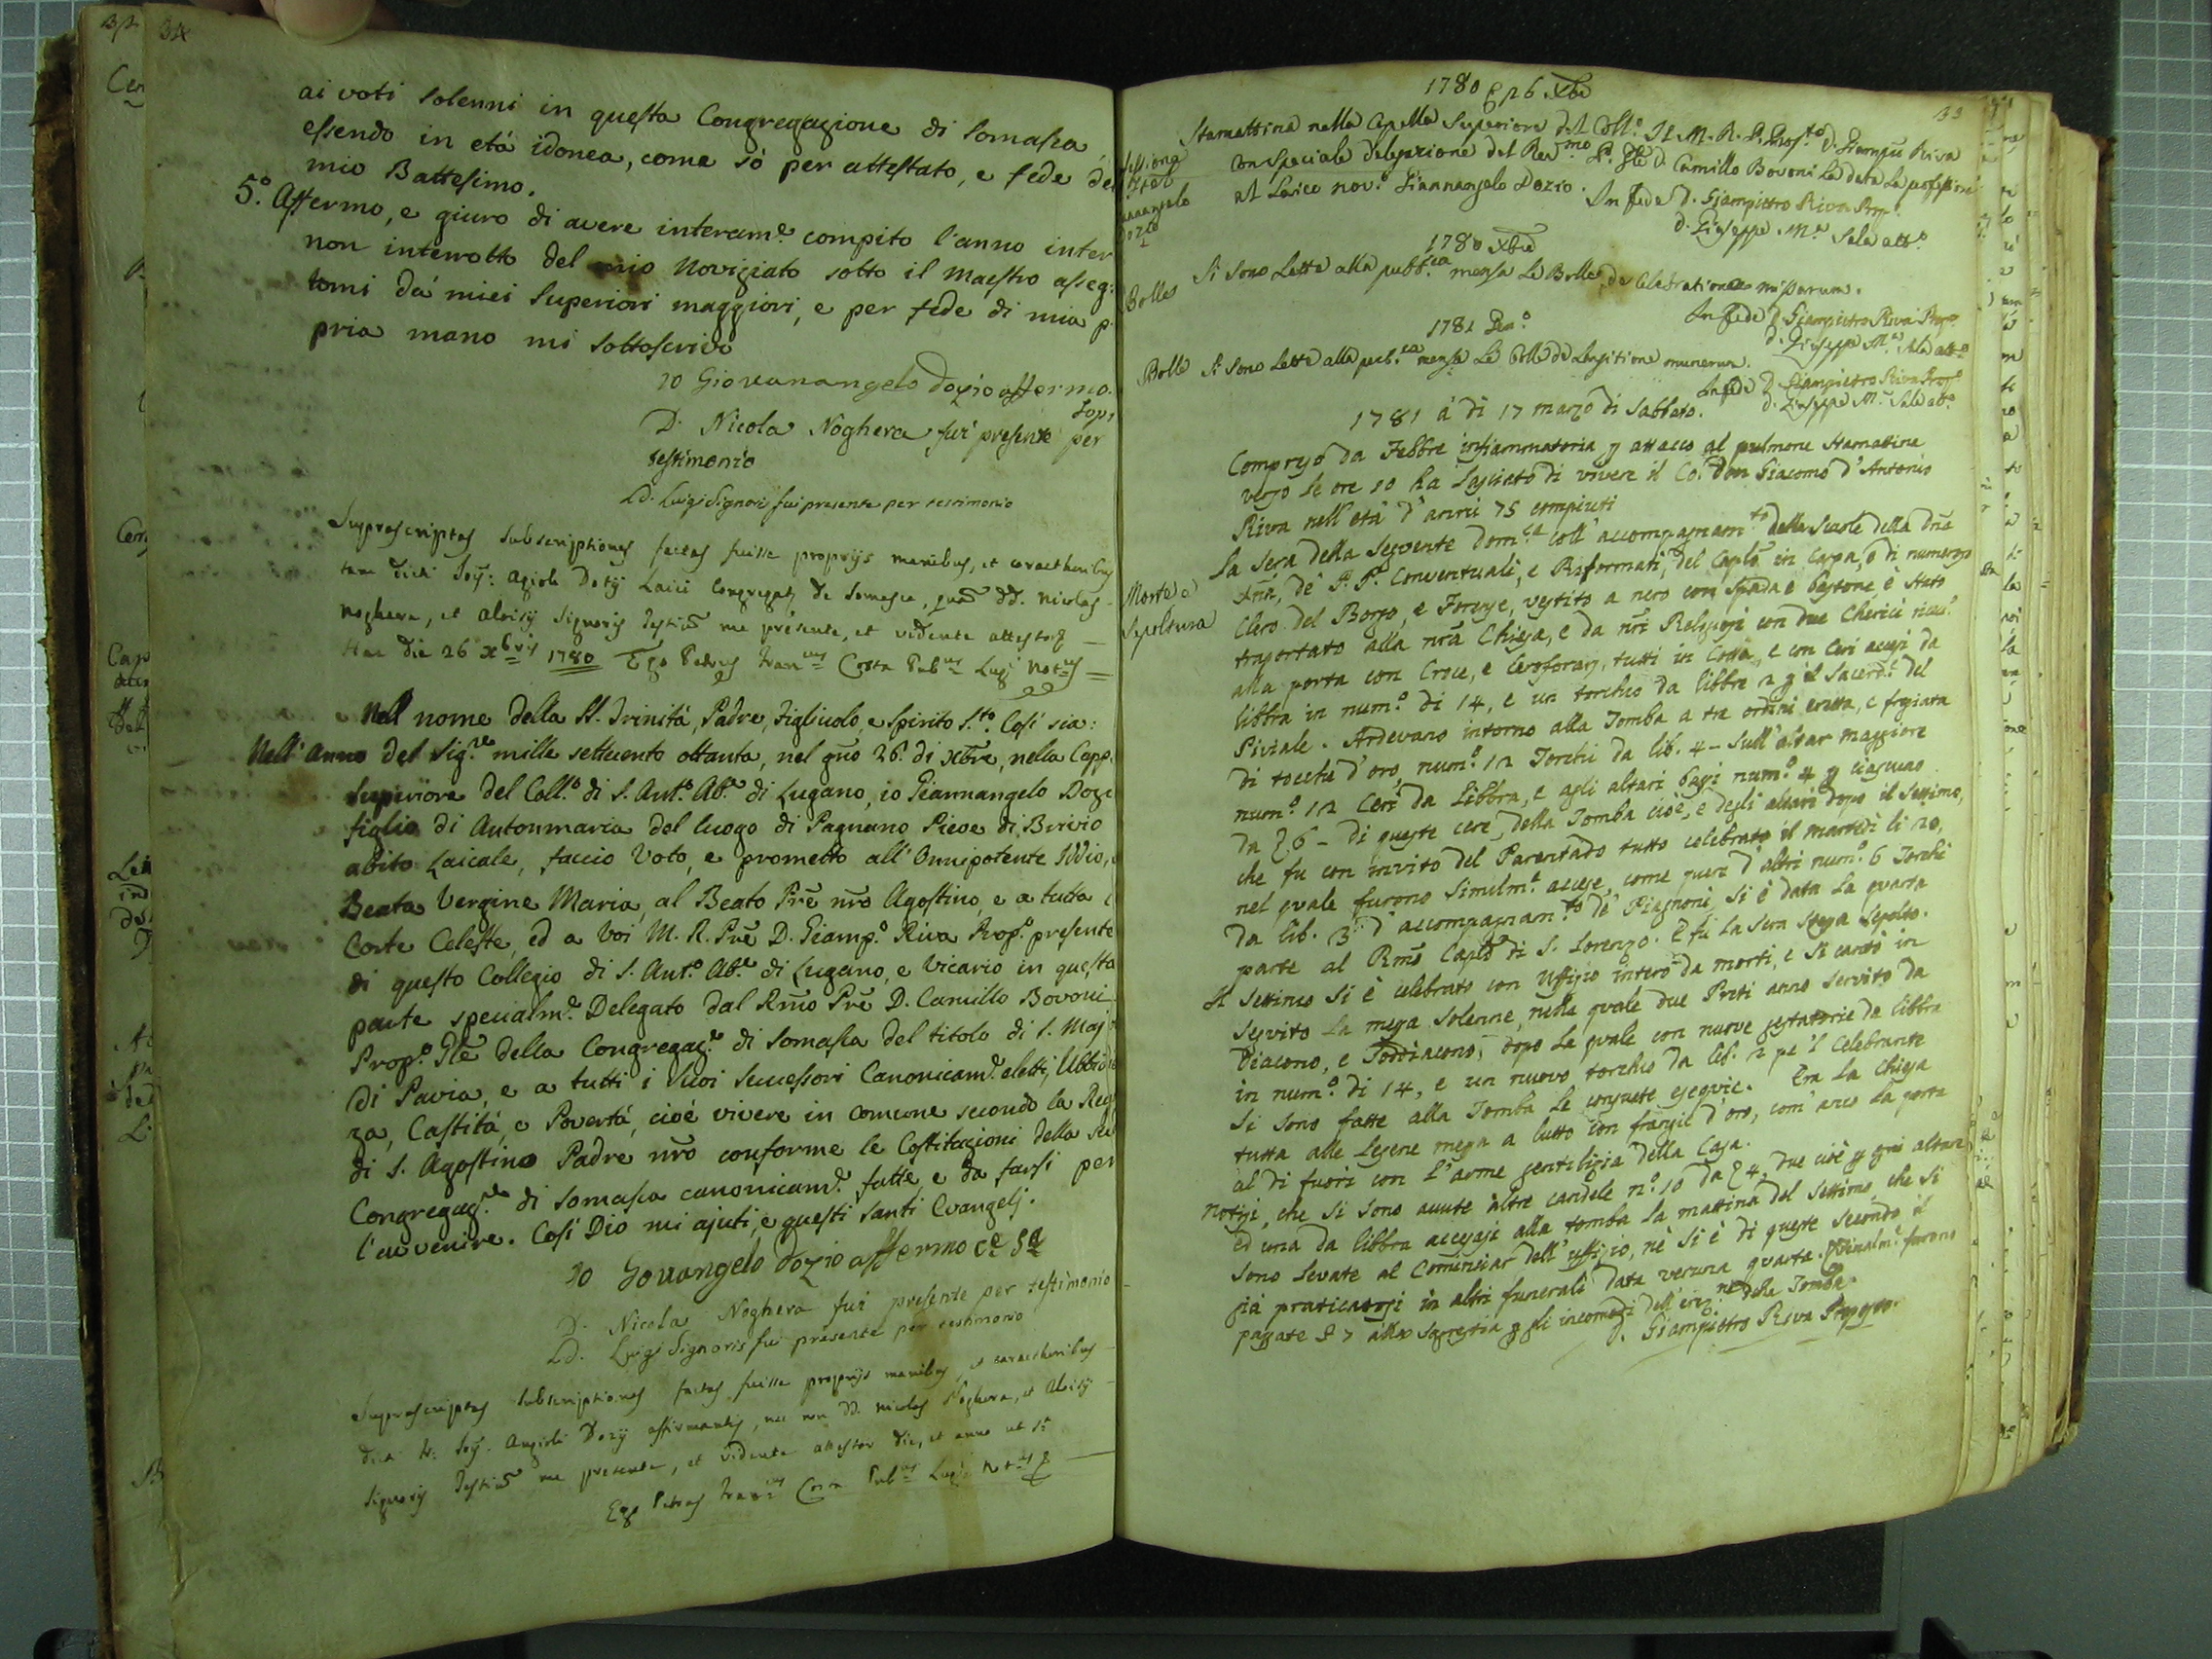 34
ai voti solenni in questa Congregazione di Somasca,
essendo in età idonea, come sò per attestato, e fede de
mio Battesimo.
5.º Affermo, e giuro di avere interam.e compito l'anno inter
non interrotto del mio Noviziato sotto il Maestro asseg:
tomi da' miei Superiori maggiori, e per fede di mia p
pria mano mi sottoscrivo
io Giovanangelo Dozio affermo.
Sopr
D. Nicola Noghera fui presente per
testimonio
D. Luigi Signori fui presente per testimonio
Suprascriptas subscriptiones factas fuisse proprijs manibus, et caractheribus
tam dicti Joñ: Dotij Laici Congregat. de Somasca, quã dd. Nicolas
Noghera, et Aloisij Signorij Testiũ me presente, et vidente attestor
Hac die 26 xbris 1780 Ego Petrus Costa Pub.us Lug. Not.us
Nell nome della SS. Trinità, Padre, Figliuolo, e Spirito S.to Così sia:
Nell'anno del Sig.re mille settecento ottanta, nel gño 26. di xbre, nella Capp.
Superiore del Coll.o di S. Ant.o Ab.e di Lugano, io Giannangelo Dozi
figlio di Antonmaria del luogo di Pagnano Pieve di Brivio
abito Laicale, faccio Voto, e prometto all'Onnipotente Iddio,
Beata Vergine Maria, al Beato Prẽ nrõ Agostino, e a tutta
Corte Celeste, ed a Voi M. R. Prẽ D. Giamp.o Riva Prop.o presente
di questo Collegio di S. Ant.o Ab.e di Lugano, e Vicario in questa
parte specialm.e Delegato dal Rmõ Prẽ D. Camillo Bovoni
Prop.o Glẽ della Congregaz.e di Somasca del titolo di S. Maj
di Pavia, e a tutti i suoi Successori Canonicam.e eletti, Ubbidie
za, Castità, e Povertà, cioè vivere in comune secondo la Reg
di S. Agostino Padre nrõ conforme le Costituzioni della
Congregaz.ne di Somasca canonicam.e fatte, e da farsi per
l'avvenire. Così Dio mi ajuti, e questi Santi Evangelj.
io Govangelo Dozio affermo
D. Nicola Noghera fui presente per testimonio
D. Luigi Signoris fui presente per testimonio
Suprascriptas subscriptiones factas fuisse proprijs manibus, et caractheribus
Dotij affirmantis, nec non dd. Nicolas Noghera, et Aloisij
Signorij Testiũ me presente, et vidente attestor die, et anno ut s.a
Ego Petrus Costa Pub.us Lug. Not.us
33
1780 26 Xbre
Stamattina nella Capella Superiore del Coll.o Il M. R. P. Prop.to D. Giampie Riva
con speciale delegazione del Rev.mo P. Gle D. Camillo Bovoni hà data la professione
al Laico nov.o Giannangelo Dozio. In fede D. Giampietro Riva Prop.o
D. Giuseppe M.a Sala att.o
1780 xbre
Bolle
Si sono Lette alla pubb.ca mensa Le Bolle, de Celebratione missarum.
In fede D. Giampietro Riva Prop.o
D. Giuseppe M.a Sala att.o
1781 Gen.o
Bolle
Si sono Lette alla pub.ca mensa Le Bolle de Largitione munerum.
In fede D. Giampietro Riva Prop.o
D. Giuseppe M.a Sala att.o
1781 à dì 17 marzo di Sabbato.
Morte e
Sepoltura
Compreso da Febbre infiammatoria p attacco al pulmone Stamattina
verso le ore 10 ha lasciato di vivere il Co. Don Giacomo d'Antonio
Riva nell'età d'anni 75 compiuti
La sera della Seguente Dom.ca coll'accompagnam.to delle Scuole della Dña
Xñã, de' P.P. Conventuali, e Riformati, del Caplõ in Cappa, e di numeroso
Clero del Borgo, e Forense, vestito a nero con Spada e bastone è stato
trasportato alla nrã Chiesa, e da nrĩ Religiosi con due Cherici ricev.o
alla porta con Croce, e Ceroferarj, tutti in Cotta, e con Ceri accesi da
libbra in num.o di 14, e un torchio da libbre 2 p il Sacerd.e del
Piviale. Ardevano intorno alla Tomba a tre ordini eretta, e fregiata
di tocche d'oro, num.o 12 Torchi da lib. 4 – Sull'altar maggiore
num.o 12 Ceri da Libbra, e agli altari bassi num.o 4 p ciascuno
da 6 – di queste cere, della Tomba cioè, e degli altari dopo il Settimo,
che fu con invito del Parentado tutto celebrato il martedì li 20,
nel quale furono similm.e accese, come pure d'altri num.o 6 Torchi
da lib. 3 d'accompagnam.to de' Piagnoni, si è data la quarta
parte al Rmõ Caplõ di S. Lorenzo. E fù la Sera stessa Sepolto.
Il Settimo si è celebrato con Uffizio intero da morti, e si cantò in
seguito la messa Solenne, nella quale due Preti anno servito da
Diacono, e Soddiacono, dopo la quale con nuove gestatorie da libbra
in num.o di 14, e un nuovo torchio da lib. 2 pe 'l Celebrante
si sono fatte alla Tomba le consuete esequie. Era la Chiesa
tutta alle Lesene messa a lutto con frangie d'oro, com'anco la porta
al di fuori con L'arme gentilizia della Casa.
Notisi, che si sono avute altre candele n.o 10 da 4, due cioè p ogni altare,
ed una da libbra accesasi alla tomba la mattina del Settimo, che si
sono levate al Cominciar dell'uffizio, nè si è di queste secondo il
già praticatosi in altri funerali data veruna quarta. Finalm.e furono
pagate £ 7 alla Sagrestia p gli incomodi dell'erez.ne della Tomba.
D. Giampietro Riva Preposto.